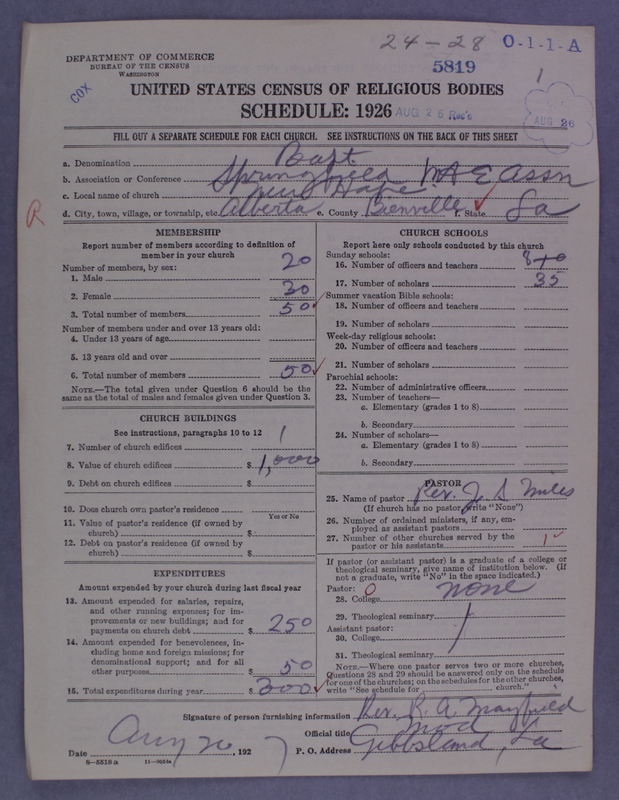 24-28 0-1-1-A
DEPARTMENT OF COMMERCE
BUREAU OF THE CENSUS
WASHINGTON
5819
1
COX
UNITED STATES CENSUS OF RELIGIOUS BODIES
SCHEDULE: 1926
AUG 26 Rec'd
AUG 26
FILL OUT A SEPARATE SCHEDULE FOR EACH CHURCH. SEE INSTRUCTIONS ON THE BACK OF THIS SHEET
a. Denomination Bapt.
b. Association or Conference Springfield M & E Assn
c. Local name of church New Hope
R d. City, town, village, or township, etc. Alberta e. County Bienville f. State La
MEMBERSHIP
Report number of members according to definition of
member in your church
Number of members, by sex:
1. Male 20
2. Female 30
3. Total number of members 50
Number of members under and over 13 years old:
4. Under 13 years of age
5. 13 years old and over
6. Total number of members 50
NOTE.—The total given under Question 6 should be the
same as the total of males and females given under Question 3.
CHURCH BUILDINGS
See instructions, paragraphs 10 to 12
7. Number of church edifices 1
8. Value of church edifices $ 1,000
9. Debt on church edifices $
10. Does church own pastor's residence
Yes or No
11. Value of pastor's residence (if owned by
church) $
12. Debt on pastor's residence (if owned by
church) $
EXPENDITURES
Amount expended by your church during last fiscal year
13. Amount expended for salaries, repairs,
and other running expenses; for im-
provements or new buildings; and for
payments on church debt $ 250
14. Amount expended for benevolences, in-
cluding home and foreign missions; for
denominational support; and for all
other purposes $ 50
15. Total expenditures during year $ 300
CHURCH SCHOOLS
Report here only schools conducted by this church
Sunday schools:
16. Number of officers and teachers
17. Number of scholars 35
Summer vacation Bible schools:
18. Number of officers and teachers
19. Number of scholars
Week-day religious schools:
20. Number of officers and teachers
21. Number of scholars
Parochial schools:
22. Number of administrative officers
23. Number of teachers—
a. Elementary (grades 1 to 8)
b. Secondary
24. Number of scholars—
a. Elementary (grades 1 to 8)
b. Secondary
PASTOR
25. Name of pastor Rev. J. S. Miles
(If church has no pastor, write "None")
26. Number of ordained ministers, if any, em-
ployed as assistant pastors
27. Number of other churches served by the
pastor or his assistants 1
If pastor (or assistant pastor) is a graduate of a college or
theological seminary, give name of institution below. (If
not a graduate, write "No" in the space indicated.)
Pastor: 0
28. College none
29. Theological seminary
Assistant pastor:
30. College
31. Theological seminary
NOTE.—Where one pastor serves two or more churches,
Questions 28 and 29 should be answered only on the schedule
for one of the churches; on the schedules for the other churches,
write "See schedule for church."
Signature of person furnishing information Rev. R. A. Mayfield
Official title Mod
Date Aug 20, 1927 P. O. Address Gibbsland, La
8—5518a 11—9034a